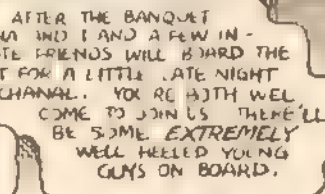 AFTER THE BANQUET
AND I AND A FEW IN-
FRIENDS WILL BOARD THE
FOR A LITTLE LATE NIGHT
YOU'RE BOTH WEL
COME TO JOIN US THERE'LL
BE SOME EXTREMELY
WELL HEELED YOUNG
GUYS ON BOARD.